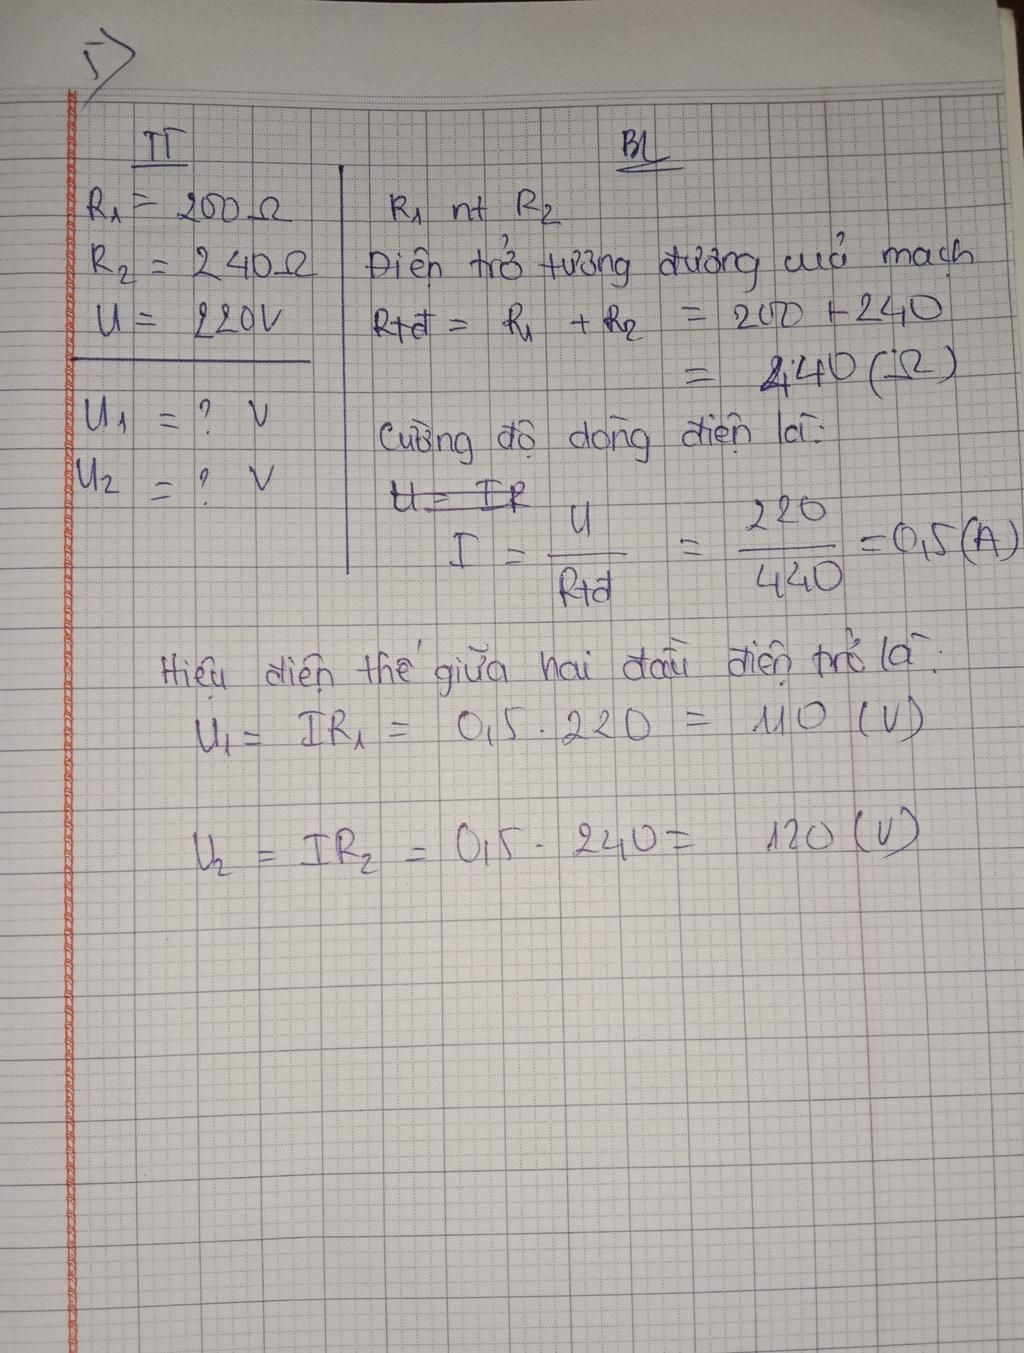 5)
TT
R1 = 200Ω
R2 = 240Ω
U = 220V
U1 = ? V
U2 = ? V
BL
R1 nt R2
Điện trở tương đương cuả mạch
Rtđ = R1 + R2 = 200 + 240
= 440 (Ω)
Cường độ dòng điện là:
U = IR
I = U / Rtđ = 220 / 440 = 0,5 (A)
Hiệu điện thế giữa hai đầu điện trở là:
U1 = IR1 = 0,5 . 220 = 110 (V)
U2 = IR2 = 0,5 . 240 = 120 (V)